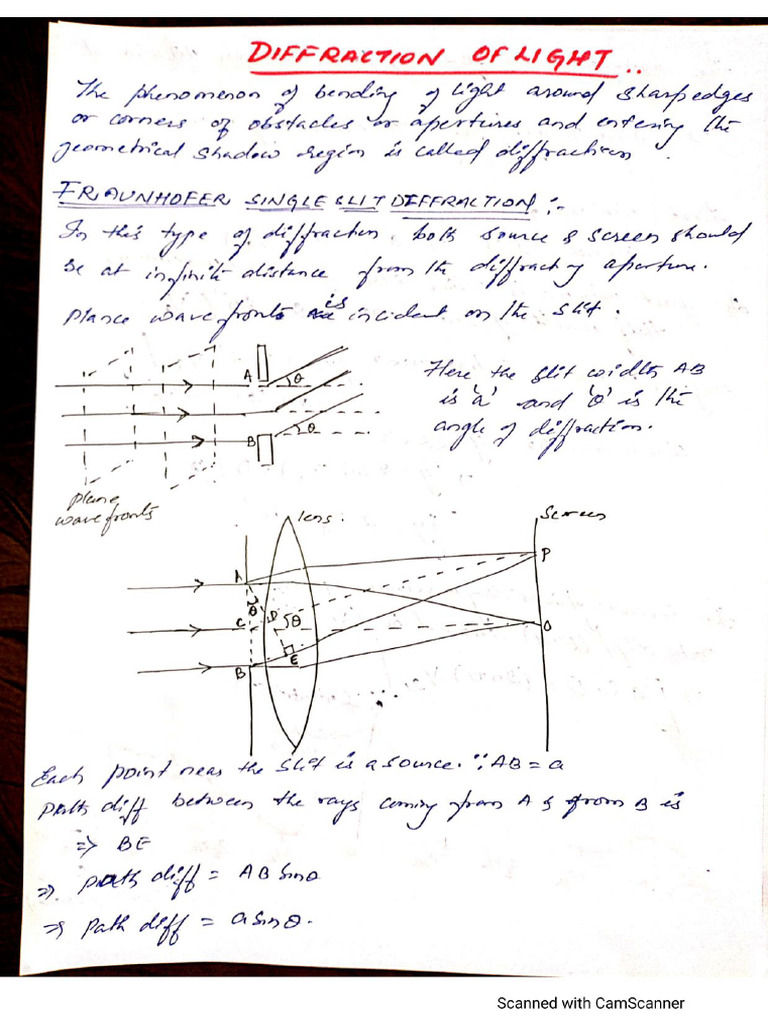 DIFFRACTION OF LIGHT..
The phenomenon of bending of light around sharp edges
or corners of obstacles or apertures and entering the
geometrical shadow region is called diffraction.
FRAUNHOFER SINGLE SLIT DIFFRACTION :-
In this type of diffraction, both source & screen should
be at infinite distance from the diffracting aperture.
Plance wave fronts is incident on the slit.
A
θ
B
θ
Here the slit width AB
is 'a' and 'θ' is the
angle of diffraction.
plane
wave fronts
lens.
Screen
A
P
θ
C
D
θ
O
E
B
Each point near the slit is a source. ∵ AB = a
Path diff between the rays coming from A & from B is
⇒ BE
⇒ path diff = AB Sinθ
⇒ Path diff = a Sinθ.
Scanned with CamScanner